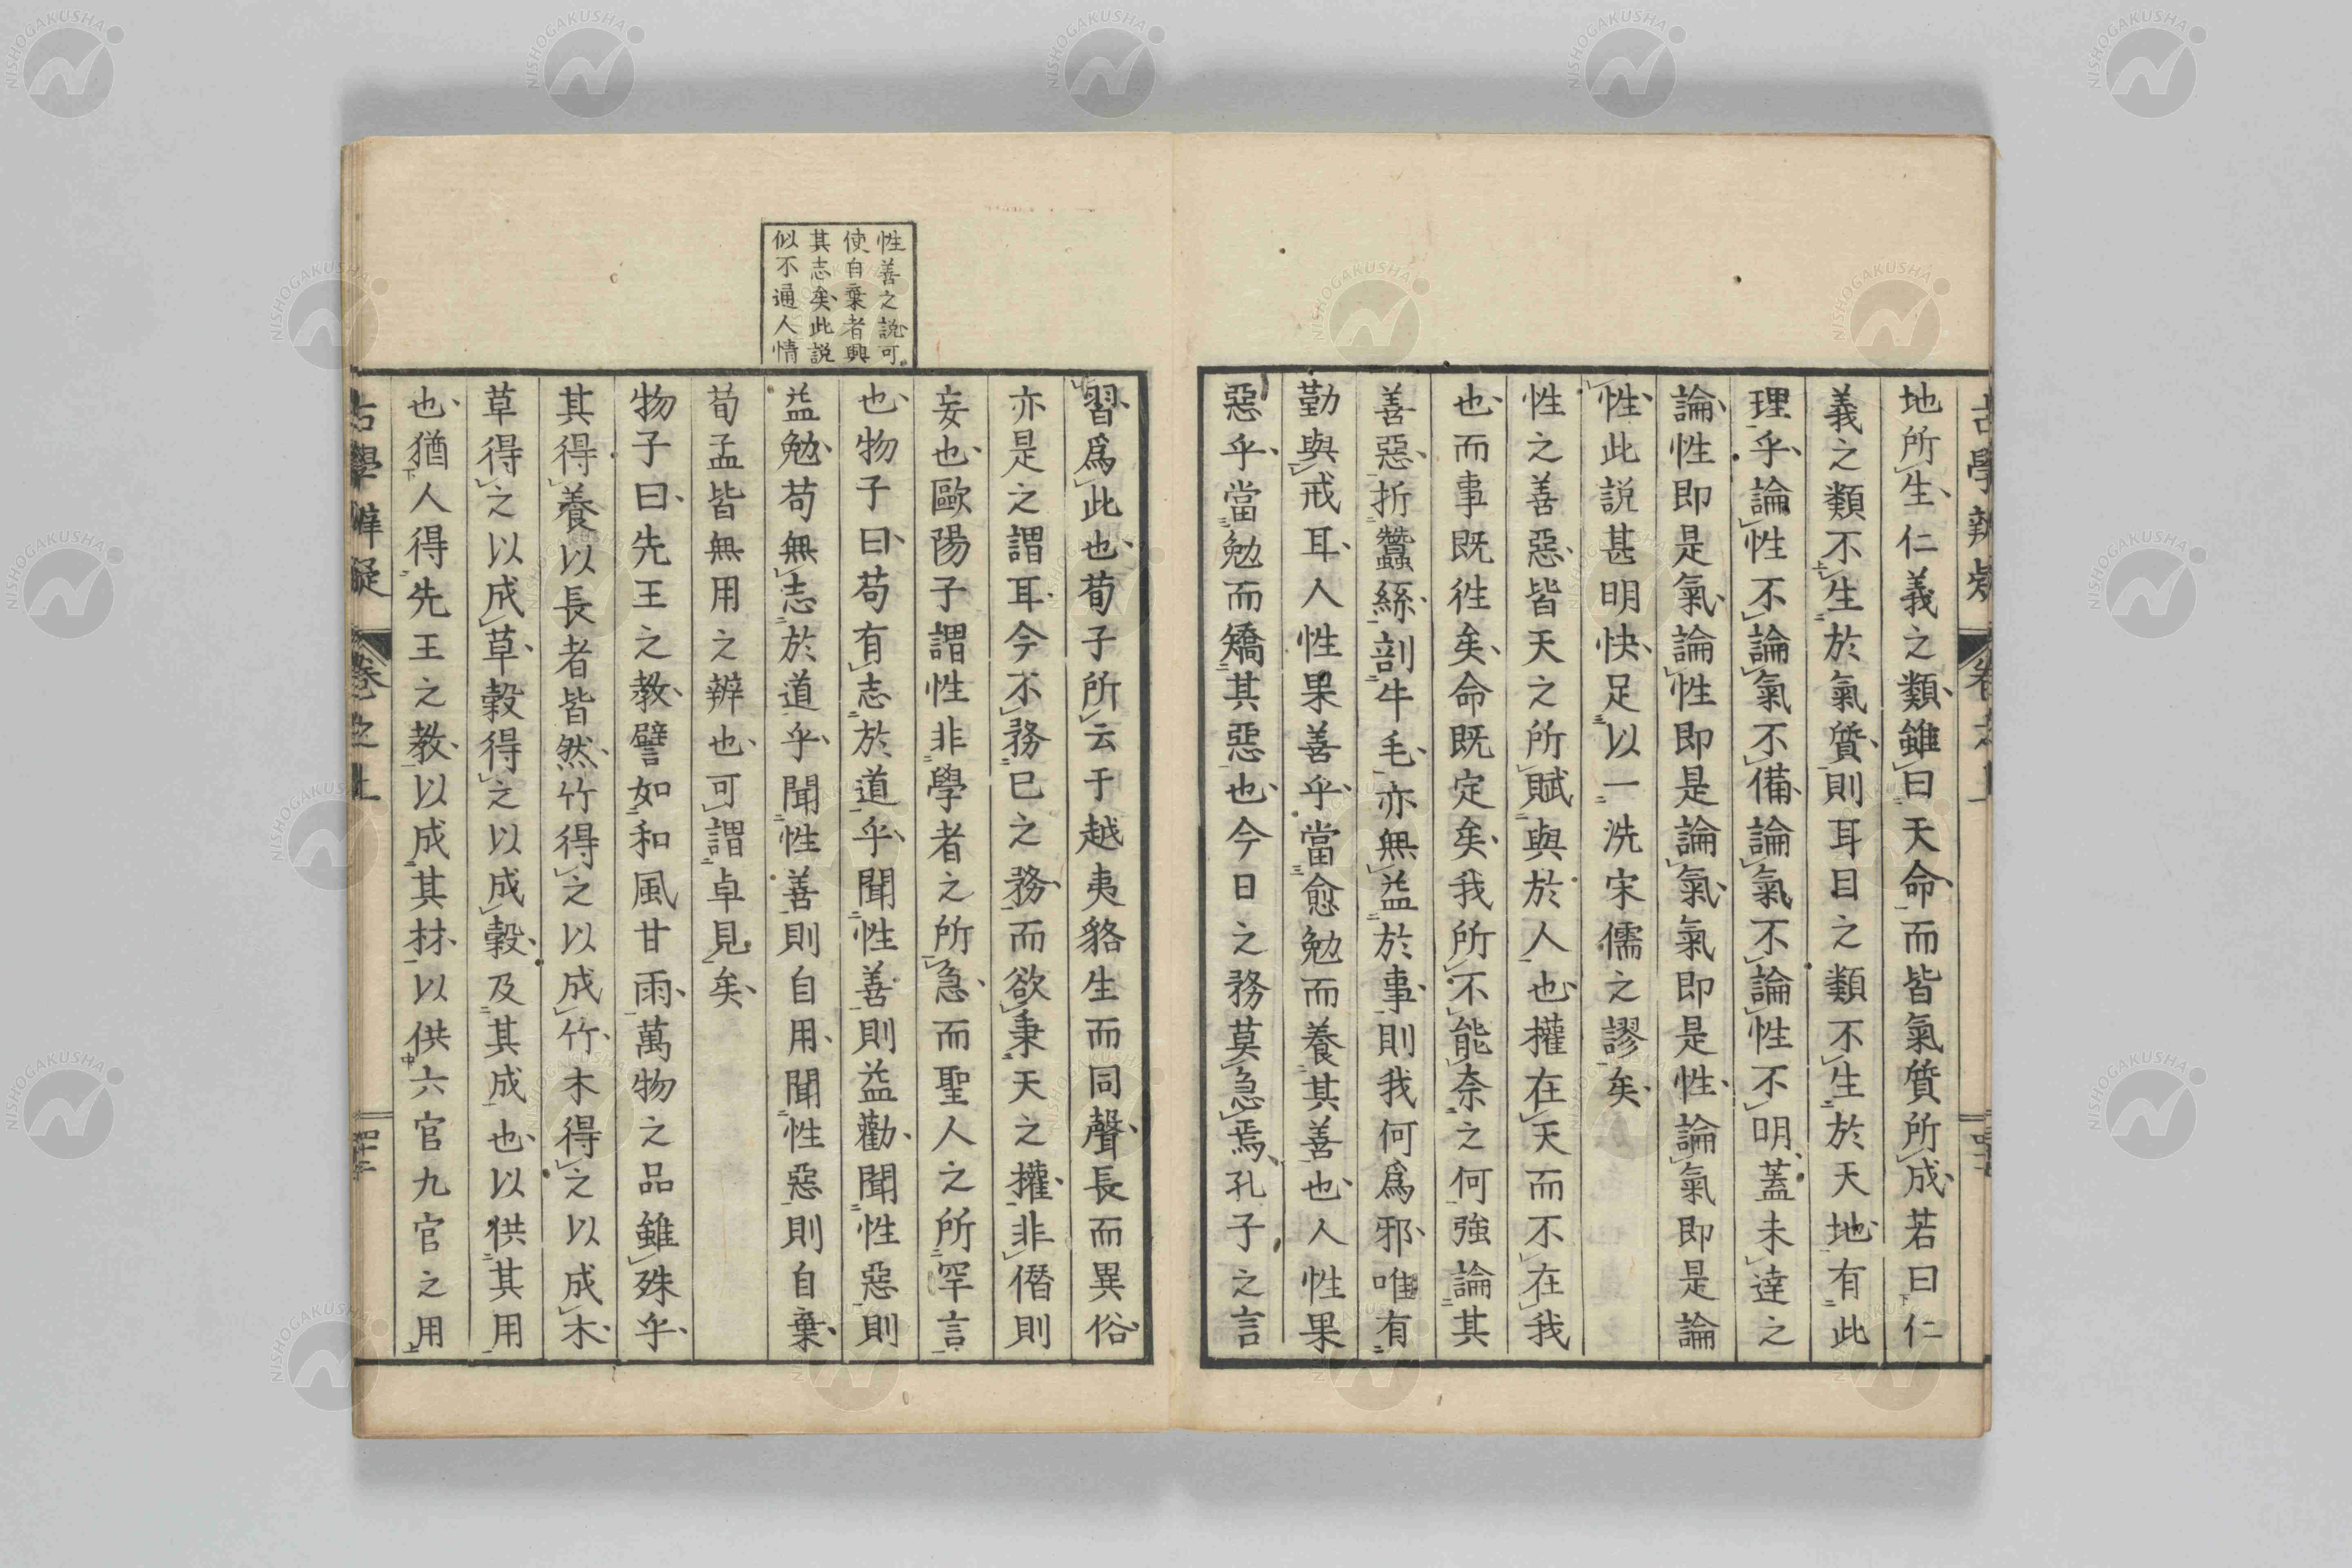 地所生、仁義之類、雖曰天命、而皆氣質所成、若曰仁
義之類不生於氣質、則耳目之類不生於天地、有此
理乎、論性不論氣不備、論氣不論性不明、蓋未達之
論、性即是氣、論性即是論氣、氣即是性、論氣即是論
性、此説甚明快、足以一洗宋儒之謬矣、
性之善惡、皆天之所賦與於人也、權在天而不在我
也、而事既徃矣、命既定矣、我所不能奈之何、強論其
善惡、折蠶絲、剖牛毛、亦無益於事、則我何爲邪、唯有
勤與戒耳、人性果善乎、當愈勉而養其善也、人性果
惡乎、當勉而矯其惡也、今日之務莫急焉、孔子之言
習爲此也、荀子所云于越夷貉生而同聲、長而異俗、
亦是之謂耳、今不務已之務、而欲秉天之權、非僭則
妄也、歐陽子謂性非學者之所急、而聖人之所罕言
也、物子曰、苟有志於道乎、聞性善則益勸、聞性惡則
益勉、苟無志於道乎、聞性善則自用、聞性惡則自棄、
荀孟皆無用之辨也、可謂卓見矣、
物子曰、先王之教、譬如和風甘雨、萬物之品雖殊乎、
其得養以長者皆然、竹得之以成竹、木得之以成木、
草得之以成草、穀得之以成穀、及其成也、以供其用
也、猶人得先王之教、以成其材、以供六官九官之用
性善之説可
使自棄者興
其志矣、此説
似不通人情
古學辨疑
卷之上
NISHOGAKUSHA